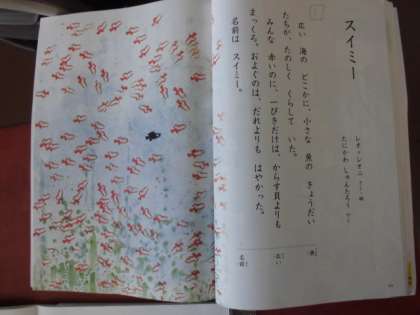 スイミー
レオ＝レオニ 作・絵
たにかわ しゅんたろう やく
広い 海の どこかに、小さな 魚の きょうだい
たちが、たのしく くらして いた。
みんな 赤いのに、一ぴきだけは、からす貝よりも
まっくろ。およぐのは、だれよりも はやかった。
名前は スイミー。
広い
名前